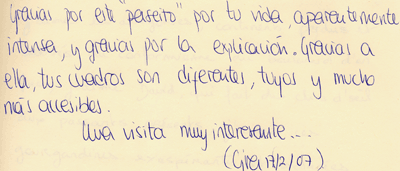 Gracias por este "paseito" por tu vida, aparentemente
intensa, y gracias por la explicación. Gracias a
ella, tus cuadros son diferentes, tuyos y mucho
más accesibles.
Una visita muy interesante...
(17/2/07)